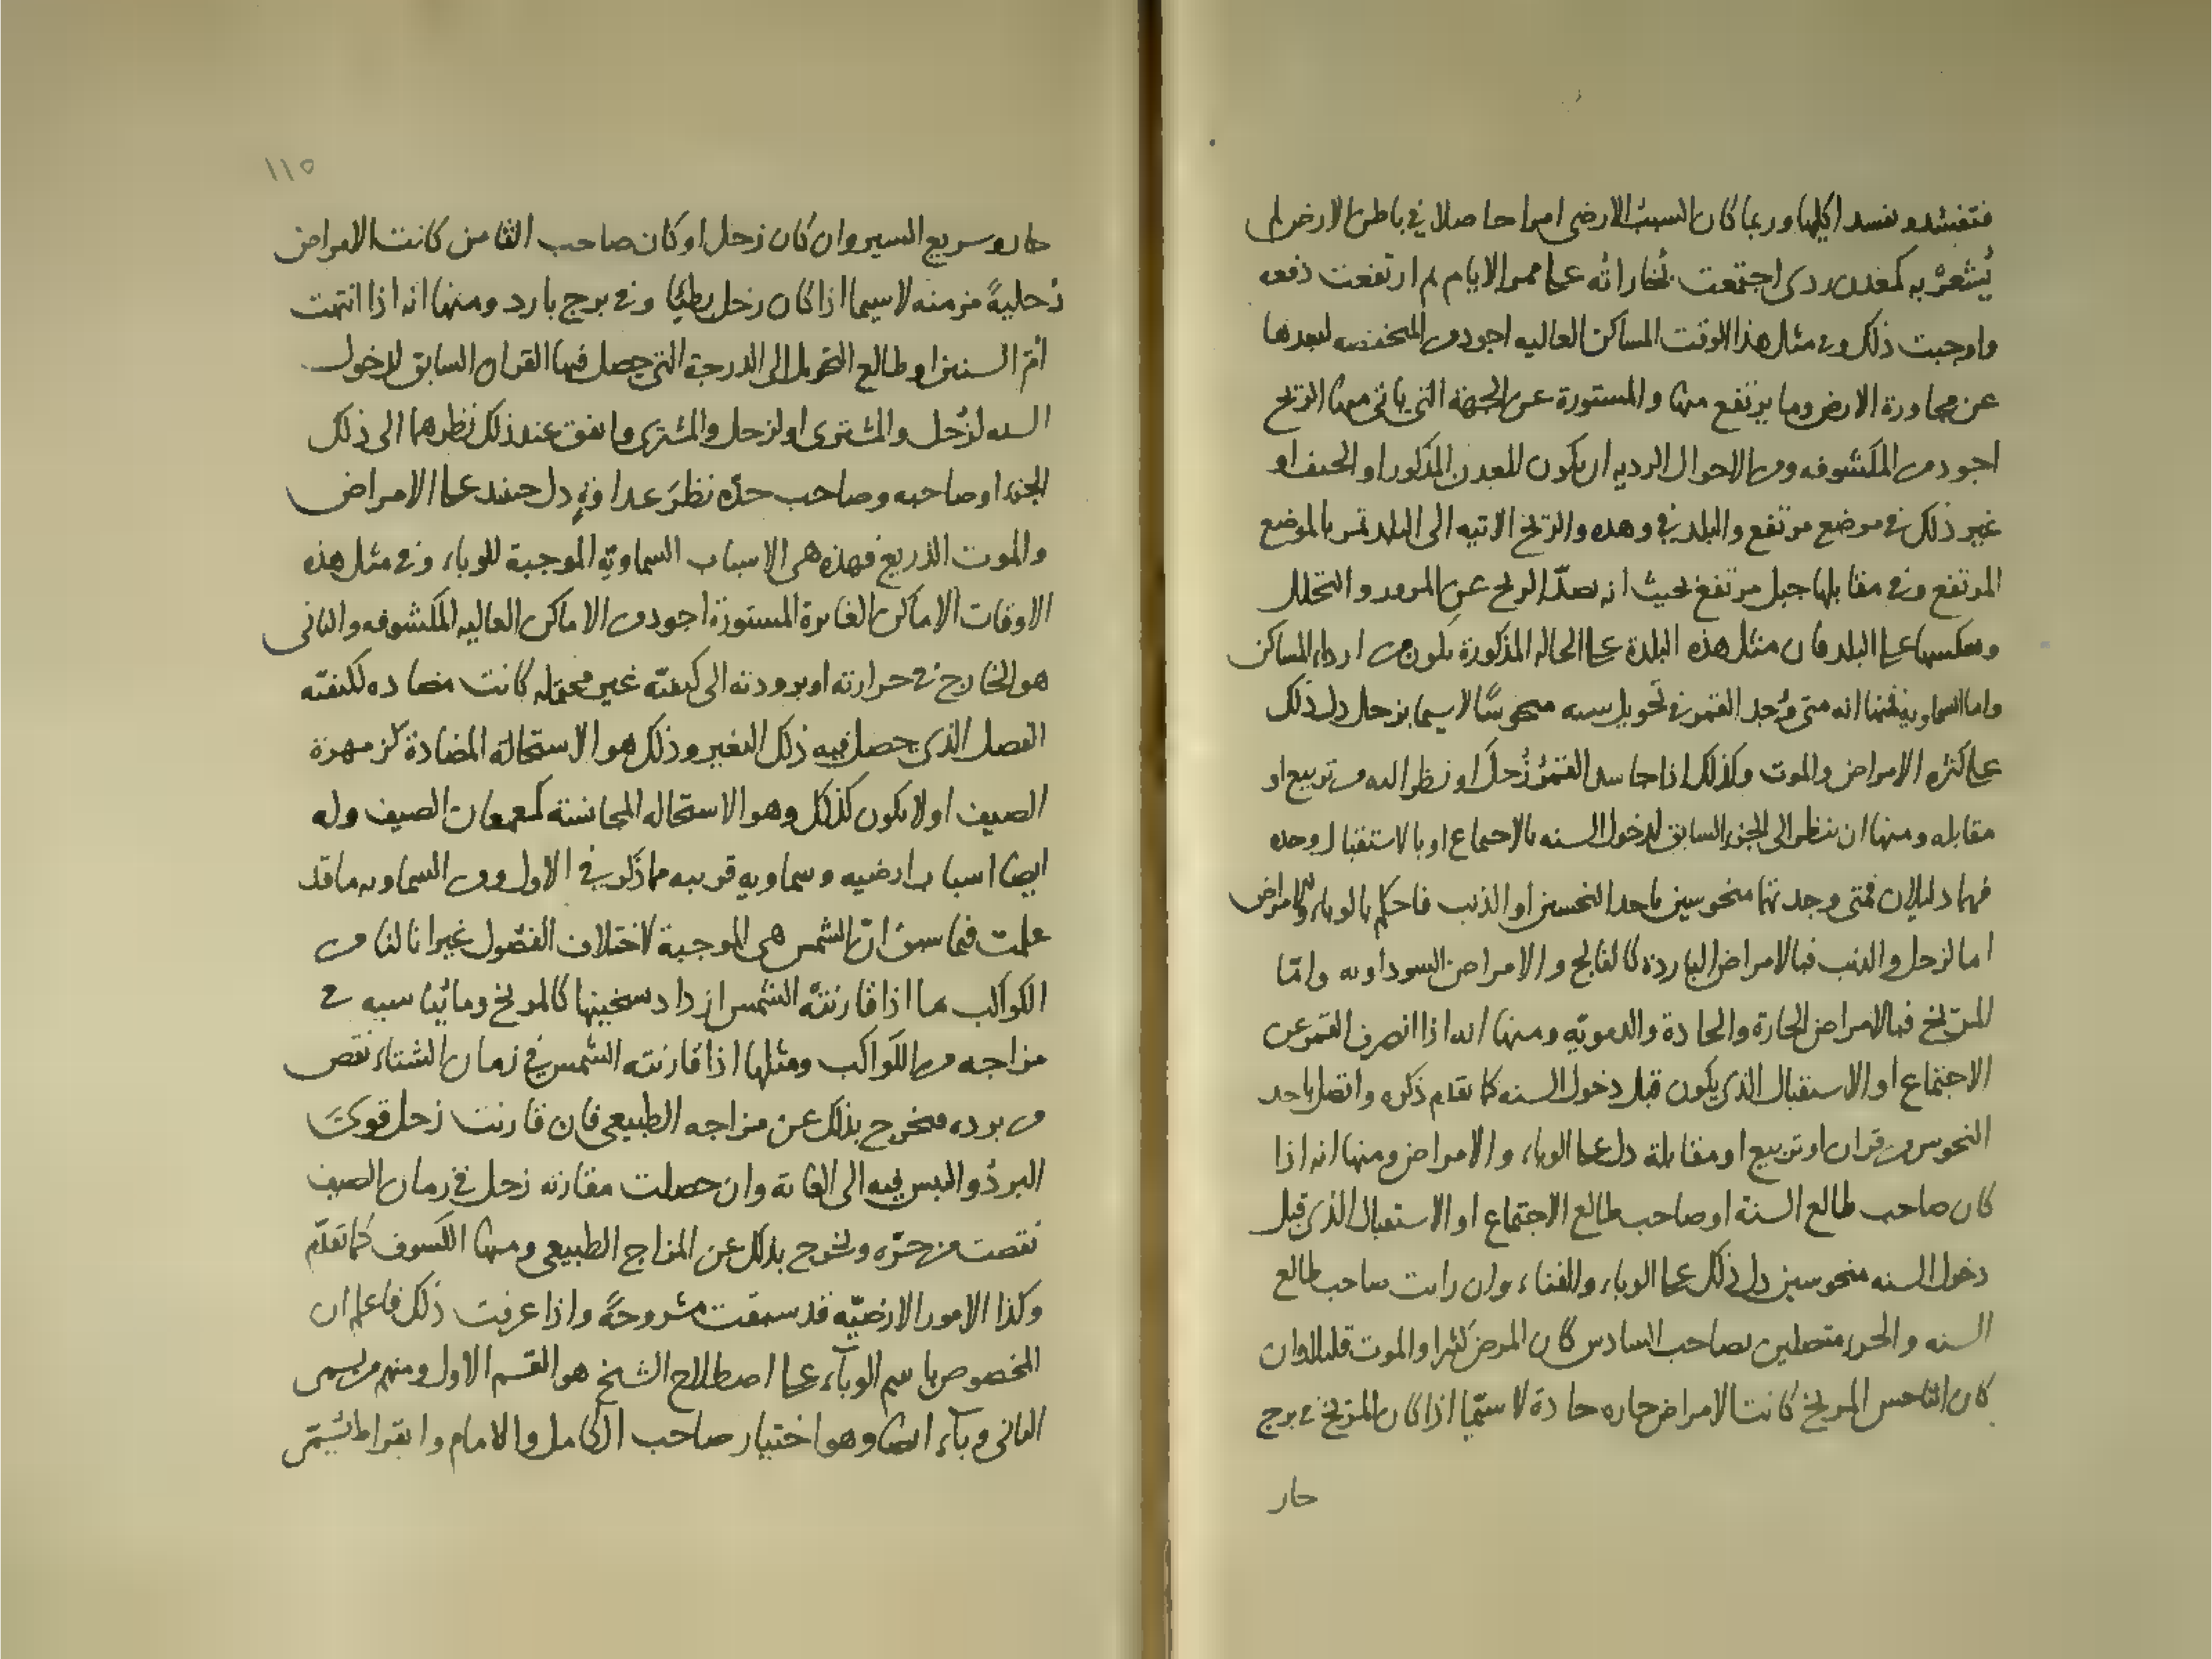 فتفسد ونفسد اكلها وربما كان السبب الارضى امرا حاصلا فى باطن الارض لم
يُشعرُ به كمعدن ردى اجتمعت بُخاراتُه على ممر الايام ثم ارتفعت دفعه
واوجبت ذلك وفى مثل هذا الوقت المساكن العاليه اجود من المنخفضه لبعدها
عن مجاورة الارض وما يرتفع منها والمستورة عن الجهة التى ياتى منها الريح
اجود من المكشوفه ومن الاحوال الرديه ان يكون المعدن المذكور او الجيف او
غير ذلك فى موضع مرتفع والبلد فى وهده والريح الاتيه الى البلد تمر بالموضع
المرتفع وفى مقابلها جبل مرتفع بحيث انه يصدّ الريح عن المرور والتحلل
ويعكسها على البلد فان مثل هذه البلدة على الحاله المذكورة يكون من اردا المساكن
واما السماويه فمنها انه متى وُجد القمر فى تحويل سنه منحوسًا لاسيما بزحل دل ذلك
على كثره الامراض والموت وكذلك اذا حاسد القمرُ زُحلَ او نظر اليه من تربيع او
مقابله ومنها ان ننظر الى الجزء السابق لدخول السنه بالاجتماع او بالاستقبال وحده
فهما دليلان فمتى وجدتهما منحوسين باحد النحسين او الذنب فاحكم بالوباء والامراض
اما لزحل والذنب فبالامراض البارده كالفالج والامراض السوداويه وامّا
المرّيخ فبالامراض الحارة والحادة والدمويّه ومنها انه اذا انصرف القمر عن
الاجتماع او الاستقبال الذى يكون قبل دخول السنه كما تقدم ذكره واتصل باحد
النحوس من قران او تربيع او مقابلة دل على الوباء والامراض ومنها انه اذا
كان صاحب طالع السنة او صاحب طالع الاجتماع او الاستقبال الذى قبل
دخول السنه منحوسين دل ذلك على الوباء والفناء وان رايت صاحب طالع
السنه والجزء متصلين بصاحب السادس كان المرض كثيرا والموت قليلا وان
كان الناحس المريخ كانت الامراض حاره حادة لا سيّما اذا كان المريخ فى برج
حار
١١٥
حار وسريع السير وان كان زحل او كان صاحب الثامن كانت الامراض
زحليةً مزمنه لاسيما اذا كان زحل بطيًا وفى برج بارد ومنها انه اذا انتهت
امّ السنين او طالع التحويل الى الدرجة التى حصل فيها القران السابق لدخول
السنه لزُحل والمشترى او لزحل والمشترى واتفق عند ذلك نظرهما الى ذلك
الجزء او صاحبه وصاحب حدّه نظرَ عداوةٍ دل حينئذ على الامراض
والموت الذريع فهذه هى الاسباب السماويّه الموجبة للوباء وفى مثل هذه
الاوقات الاماكن الغايرة المستورة اجود من الاماكن العاليه المكشوفه والثانى
هو الخارج فى حرارته او برودته الى كيفيّه غير محتمله كانت مضاده لكيفيّه
الفصل الذى حصل فيه ذلك التغير وذلك هو الاستحالة المضادة كزمهرة
الصيف او لا يكون كذلك وهو الاستحاله المجانسه كمعمعان الصيف وله
ايضا اسباب ارضيه وسماويه قريبه مما ذكر فى الاول ومن السماويه ما قد
علمت فيما سبق انّ الشمس هى الموجبة لاختلاف الفصُول غير انا لنا من
الكواكب ما اذا قارنتْه الشمس ازداد تسخينها كالمريخ وما يُناسبه فى
مزاجه من الكواكب ومثلها اذا قارنته الشمس فى زمان الشتاء نقص
من برده فيخرج بذلك عن مزاجه الطبيعى فان قارنت زحل قوىَ
البردُ واليبس فيه الى الغاية وان حصلت مقارنه زحل فى زمان الصيف
نقصت من حرّه ويخرج بذلك عن المزاج الطبيعى ومنها الكسوف كما تقدّم
وكذا الامور الارضيّه قد سبقت مشروحةً واذا عرفت ذلك فاعلم ان
المخصوص باسم الوباء على اصطلاح الشيخ هو القسم الاول ومنهم من يسمى
الثانى وباء ايضا وهو اختيار صاحب الكامل والامام وابقراط يُسمّى